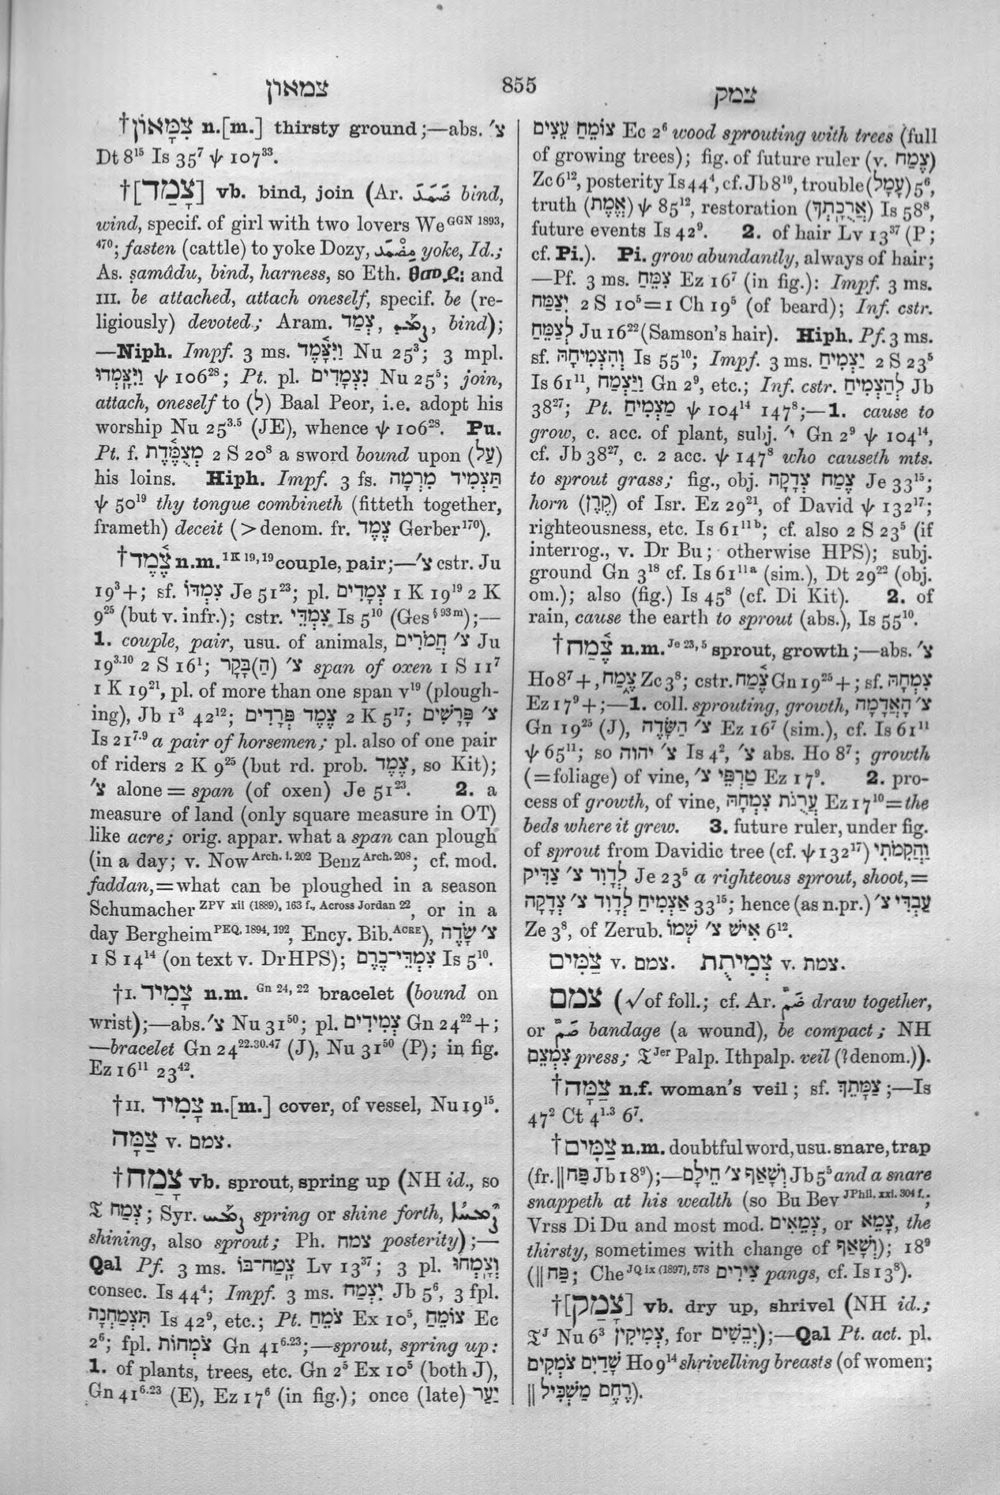 צמאון
855
צמק
†צִמָּאוֹן n.[m.] thirsty ground;—abs. צ׳
Dt 8¹⁵ Is 35⁷ ψ 107³³.
†[צָמַד] vb. bind, join (Ar. ضَمَدَ bind,
wind, specif. of girl with two lovers We GGN 1893,
470; fasten (cattle) to yoke Dozy, yoke, Id.;
As. ṣamâdu, bind, harness, so Eth. and
III. be attached, attach oneself, specif. be (re-
ligiously) devoted; Aram. צְמַד, bind);
—Niph. Impf. 3 ms. וַיִּצָּמֶד Nu 25³; 3 mpl.
וַיִּצָּמְדוּ ψ 106²⁸; Pt. pl. נִצְמָדִים Nu 25⁵; join,
attach, oneself to (לְ) Baal Peor, i.e. adopt his
worship Nu 25³·⁵ (JE), whence ψ 106²⁸. Pu.
Pt. f. מְצֻמֶּדֶת 2 S 20⁸ a sword bound upon (עַל)
his loins. Hiph. Impf. 3 fs. תַּצְמִיד מִרְמָה
ψ 50¹⁹ thy tongue combineth (fitteth together,
frameth) deceit (> denom. fr. צֶמֶד Gerber¹⁷⁰).
†צֶמֶד n.m. 1 K 19, 19 couple, pair;—צ׳ cstr. Ju
19³ +; sf. צִמְדּוֹ Je 51²³; pl. צְמָדִים 1 K 19¹⁹ 2 K
9²⁵ (but v. infr.); cstr. צִמְדֵּי Is 5¹⁰ (Ges § 93 m);—
1. couple, pair, usu. of animals, צ׳ חֲמֹרִים Ju
19³·¹⁰ 2 S 16¹; צ׳ (הַ)בָּקָר span of oxen 1 S 11⁷
1 K 19²¹, pl. of more than one span v¹⁹ (plough-
ing), Jb 1³ 42¹²; צֶמֶד פְּרָדִים 2 K 5¹⁷; צ׳ פָּרָשִׁים
Is 21⁷·⁹ a pair of horsemen; pl. also of one pair
of riders 2 K 9²⁵ (but rd. prob. צֶמֶד, so Kit);
צ׳ alone = span (of oxen) Je 51²³. 2. a
measure of land (only square measure in OT)
like acre; orig. appar. what a span can plough
(in a day; v. Now Arch. i. 202 Benz Arch. 208; cf. mod.
faddan, = what can be ploughed in a season
Schumacher ZPV xii (1889), 163 f., Across Jordan 22, or in a
day Bergheim PEQ, 1894, 192, Ency. Bib. ACRE), צ׳ שָׂדֶה
1 S 14¹⁴ (on text v. DrHPS); צִמְדֵּי־כֶרֶם Is 5¹⁰.
†I. צָמִיד n.m. Gn 24, 22 bracelet (bound on
wrist);—abs. צ׳ Nu 31⁵⁰; pl. צְמִידִים Gn 24²² +;
—bracelet Gn 24²²·³⁰·⁴⁷ (J), Nu 31⁵⁰ (P); in fig.
Ez 16¹¹ 23⁴².
†II. צָמִיד n.[m.] cover, of vessel, Nu 19¹⁵.
צַמָּה v. צמם.
†צָמַח vb. sprout, spring up (NH id., so
𝔗 צְמַח; Syr. spring or shine forth,
shining, also sprout; Ph. צמח posterity);—
Qal Pf. 3 ms. צָמַח־בּוֹ Lv 13³⁷; 3 pl. וְצָמְחוּ
consec. Is 44⁴; Impf. 3 ms. יִצְמַח Jb 5⁶, 3 fpl.
תִּצְמַחְנָה Is 42⁹, etc.; Pt. צֹמֵחַ Ex 10⁵, צוֹמֵחַ Ec
2⁶; fpl. צֹמְחוֹת Gn 41⁶·²³;—sprout, spring up:
1. of plants, trees, etc. Gn 2⁵ Ex 10⁵ (both J),
Gn 41⁶·²³ (E), Ez 17⁶ (in fig.); once (late) יַעַר
צוֹמֵחַ עֵצִים Ec 2⁶ wood sprouting with trees (full
of growing trees); fig. of future ruler (v. צֶמַח)
Zc 6¹², posterity Is 44⁴, cf. Jb 8¹⁹, trouble (עָמָל) 5⁶,
truth (אֱמֶת) ψ 85¹², restoration (אֲרֻכָתְךָ) Is 58⁸,
future events Is 42⁹. 2. of hair Lv 13³⁷ (P;
cf. Pi.). Pi. grow abundantly, always of hair;
—Pf. 3 ms. צִמֵּחַ Ez 16⁷ (in fig.): Impf. 3 ms.
יְצַמַּח 2 S 10⁵ = 1 Ch 19⁵ (of beard); Inf. cstr.
לְצַמֵּחַ Ju 16²² (Samson's hair). Hiph. Pf. 3 ms.
sf. וְהִצְמִיחָהּ Is 55¹⁰; Impf. 3 ms. יַצְמִיחַ 2 S 23⁵
Is 61¹¹, וַיַּצְמַח Gn 2⁹, etc.; Inf. cstr. לְהַצְמִיחַ Jb
38²⁷; Pt. מַצְמִיחַ ψ 104¹⁴ 147⁸;—1. cause to
grow, c. acc. of plant, subj. י׳ Gn 2⁹ ψ 104¹⁴,
cf. Jb 38²⁷, c. 2 acc. ψ 147⁸ who causeth mts.
to sprout grass; fig., obj. צֶמַח צְדָקָה Je 33¹⁵;
horn (קֶרֶן) of Isr. Ez 29²¹, of David ψ 132¹⁷;
righteousness, etc. Is 61¹¹ᵇ; cf. also 2 S 23⁵ (if
interrog., v. Dr Bu; otherwise HPS); subj.
ground Gn 3¹⁸ cf. Is 61¹¹ᵃ (sim.), Dt 29²² (obj.
om.); also (fig.) Is 45⁸ (cf. Di Kit). 2. of
rain, cause the earth to sprout (abs.), Is 55¹⁰.
†צֶמַח n.m. Je 23, 5 sprout, growth;—abs. צ׳
Ho 8⁷ +, צֶמַח Zc 3⁸; cstr. צֶמַח Gn 19²⁵ +; sf. צִמְחָהּ
Ez 17⁹ +;—1. coll. sprouting, growth, צ׳ הָאֲדָמָה
Gn 19²⁵ (J), צ׳ הַשָּׂדֶה Ez 16⁷ (sim.), cf. Is 61¹¹
ψ 65¹¹; so צ׳ יהוה Is 4², צ׳ abs. Ho 8⁷; growth
(= foliage) of vine, טַרְפֵּי צ׳ Ez 17⁹. 2. pro-
cess of growth, of vine, עֲרֻגֹת צִמְחָהּ Ez 17¹⁰ = the
beds where it grew. 3. future ruler, under fig.
of sprout from Davidic tree (cf. ψ 132¹⁷) וַהֲקִמֹתִי
לְדָוִד צ׳ צַדִּיק Je 23⁵ a righteous sprout, shoot, =
אַצְמִיחַ לְדָוִד צ׳ צְדָקָה 33¹⁵; hence (as n.pr.) עַבְדִּי צ׳
Ze 3⁸, of Zerub. אִישׁ צ׳ שְׁמוֹ 6¹².
צַמִּים v. צמם. צְמִיתֻת v. צמת.
צמם (√ of foll.; cf. Ar. ضَمَّ draw together,
or bandage (a wound), be compact; NH
צִמְצֵם press; 𝔗 Jer Palp. Ithpalp. veil (? denom.)).
†צַמָּה n.f. woman's veil; sf. צַמָּתֵךְ;—Is
47² Ct 4¹·³ 6⁷.
†צַמִּים n.m. doubtful word, usu. snare, trap
(fr. ‖ פַּח Jb 18⁹);—וְשָׁאַף צ׳ חֵילָם Jb 5⁵ and a snare
snappeth at his wealth (so Bu Bev JPhil. xxi. 304 f.;
Vrss Di Du and most mod. צְמֵאִים, or צָמֵא, the
thirsty, sometimes with change of וְשָׁאַף); 18⁹
(‖ פַּח; Che JQ ix (1897), 578 צִירִים pangs, cf. Is 13⁸).
†[צָמַק] vb. dry up, shrivel (NH id.;
𝔗 J Nu 6³ צְמִיקִין, for יְבֵשִׁים);—Qal Pt. act. pl.
שָׁדַיִם צֹמְקִים Ho 9¹⁴ shrivelling breasts (of women;
‖ רֶחֶם מַשְׁכִּיל).